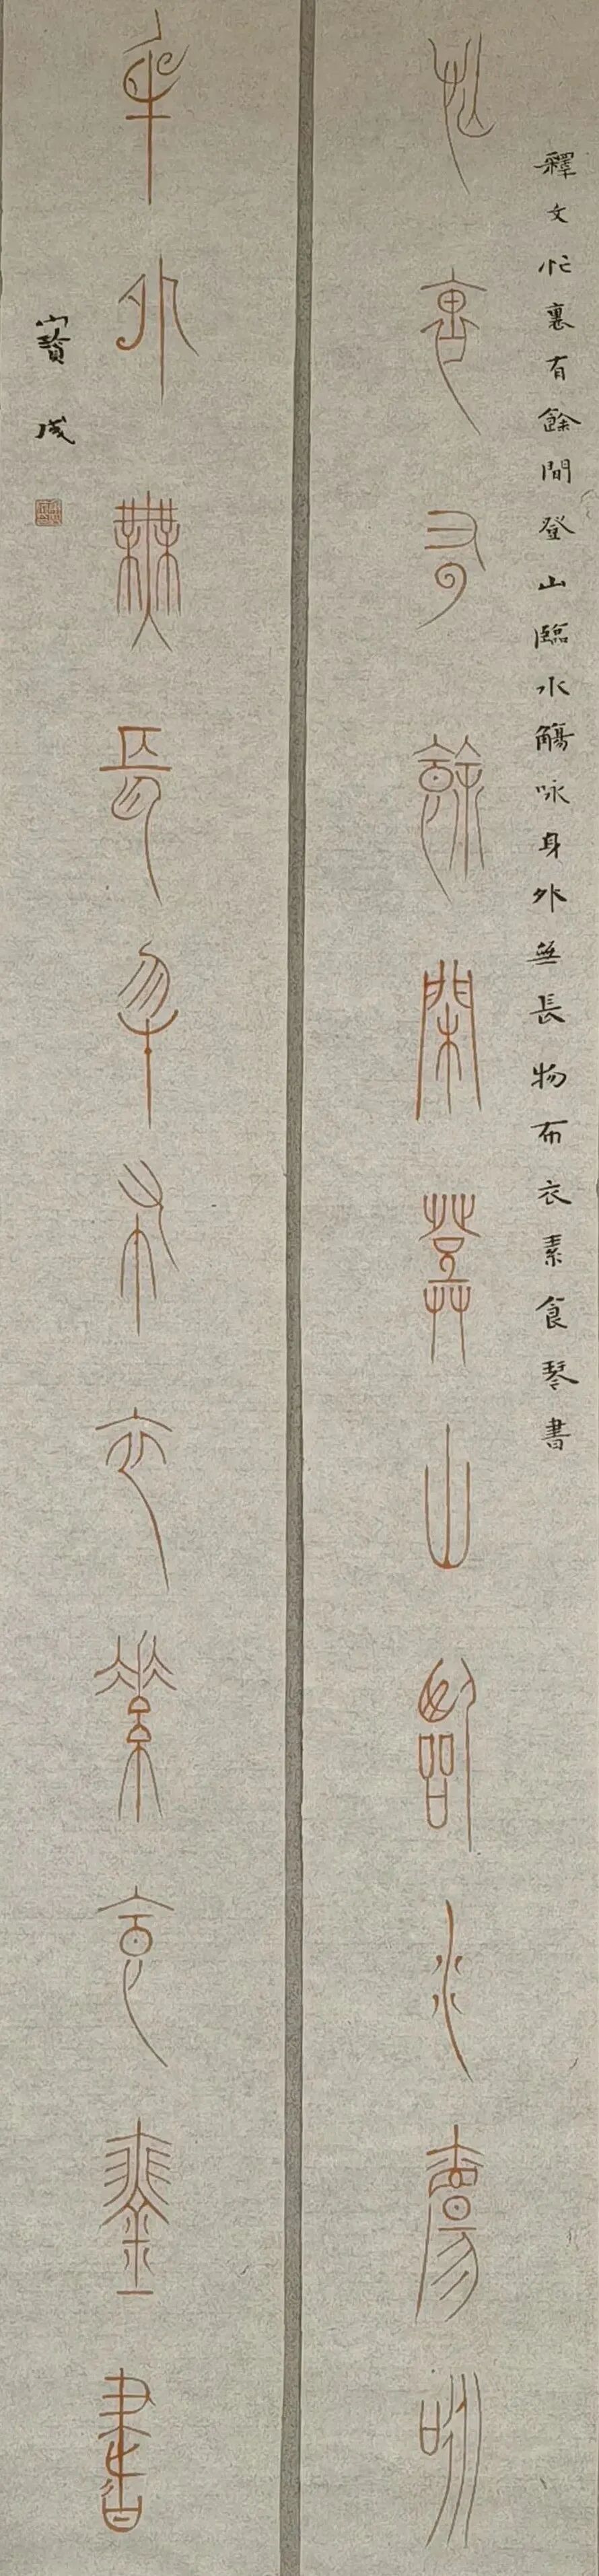 釋文忙裏有餘間登山臨水觴咏身外無長物布衣素食琴書
忙裏有餘閑登山臨水觴咏
身外無長物布衣素食琴書
寶成